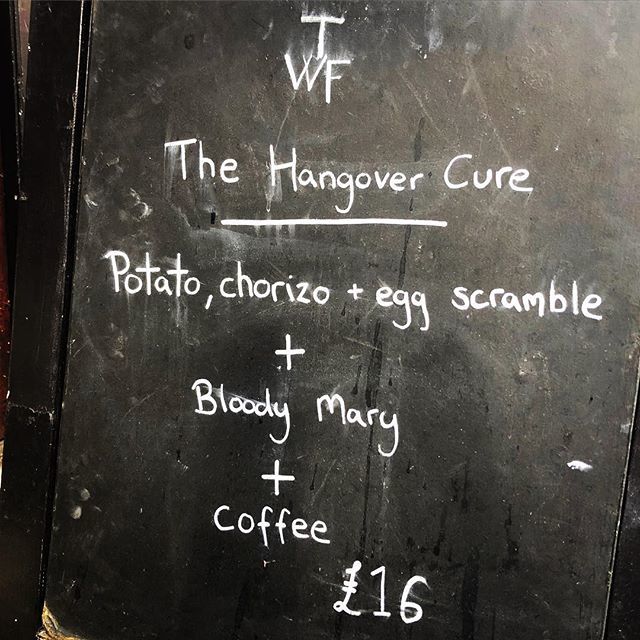 T
WF
The Hangover Cure
Potato, chorizo + egg scramble
+
Bloody Mary
+
Coffee
£16